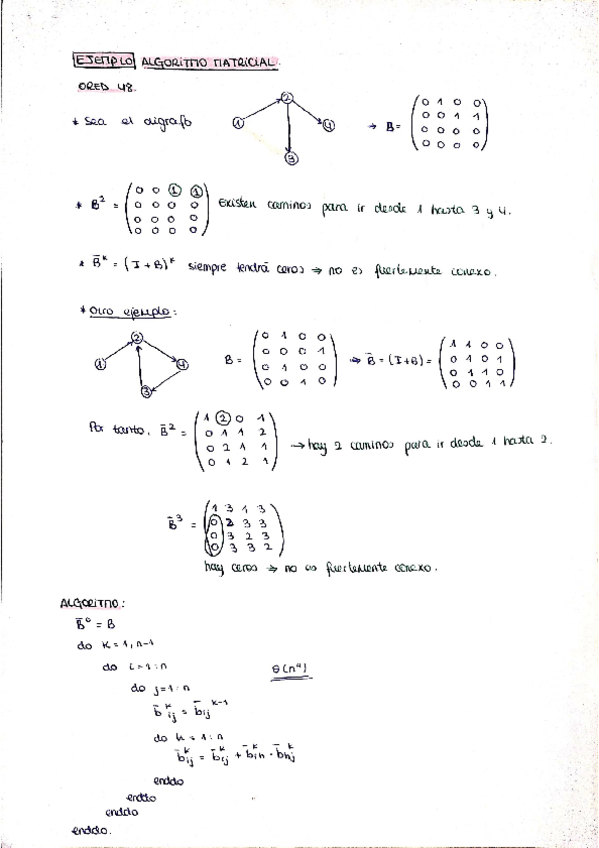 EJEMPLO ALGORITMO MATRICIAL.
ORED 48.
* Sea el digrafo
1 2 3 4
→ B = ( 0 1 0 0
0 0 1 1
0 0 0 0
0 0 0 0 )
* B² = ( 0 0 1 1
0 0 0 0
0 0 0 0
0 0 0 0 ) Existen caminos para ir desde 1 hasta 3 y 4.
* B̄ᵏ = (I + B)ᵏ siempre tendrá ceros ⇒ no es fuertemente conexo.
* Otro ejemplo:
1 2 3 4
B = ( 0 1 0 0
0 0 0 1
0 1 0 0
0 0 1 0 )
⇒ B̄ = (I+B) = ( 1 1 0 0
0 1 0 1
0 1 1 0
0 0 1 1 )
Por tanto, B̄² = ( 1 2 0 1
0 1 1 2
0 2 1 1
0 1 2 1 ) → hay 2 caminos para ir desde 1 hasta 2.
B̄³ = ( 1 3 1 3
0 2 3 3
0 3 2 3
0 3 3 2 )
hay ceros ⇒ no es fuertemente conexo.
ALGORITMO:
B̄⁰ = B
do k = 1, n-1
do i = 1:n
θ(n⁴)
do j = 1:n
b̄ᵏij = b̄ij ᵏ⁻¹
do h = 1:n
b̄ᵏij = b̄ᵏij + b̄ᵏih · b̄ᵏhj
enddo
enddo
enddo
enddo.